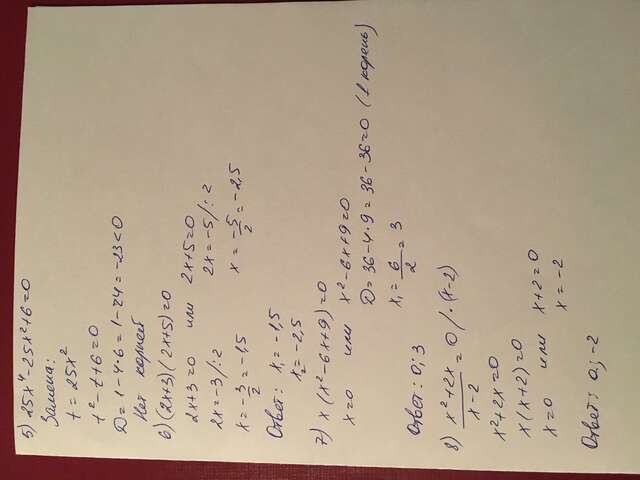 5) 25x⁴-25x²+6=0
Замена:
t=25x²
t²-t+6=0
D=1-4·6=1-24=-23<0
Нет корней
6) (2x+3)(2x+5)=0
2x+3=0 или 2x+5=0
2x=-3/:2 2x=-5/:2
x=-3/2=-1,5 x=-5/2=-2,5
Ответ: x₁=-1,5
x₂=-2,5
7) x(x²-6x+9)=0
x=0 или x²-6x+9=0
D=36-4·9=36-36=0 (1 корень)
x₁=6/2=3
Ответ: 0; 3
8) x²+2x/x-2=0/·(x-2)
x²+2x=0
x(x+2)=0
x=0 или x+2=0
x=-2
Ответ: 0; -2